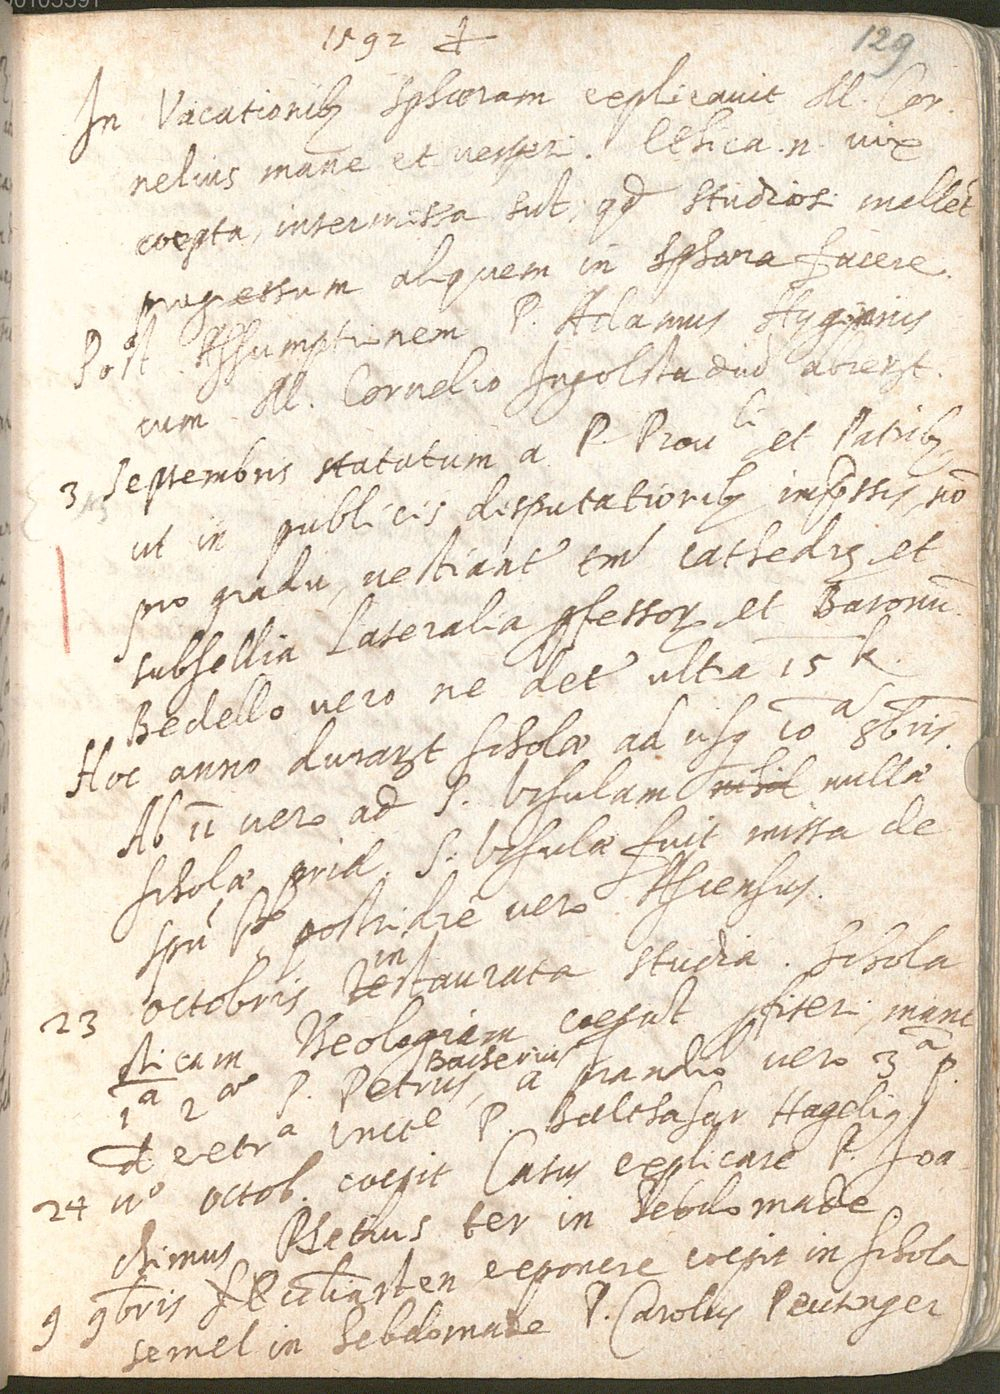 1592
129
In Vacationibꝫ sphæram explicauit M. Cor-
nelius mane et uesperi. Ethica .n. uix
coepta, intermissa sūt, qđ studiosi mallēt
progressum aliquem in sphæra facere.
Post Assumptionem P. Adamus Hyginus
cum M. Cornelio Ingolstadiū abierūt.
3 Septembris statutum a P. Prouli et Patribꝫ,
ut in publicis disputationibꝫ impressis, nō
pro gradu, uestiant' tm̄ cathedra et
subsellia Lateralia professorꝝ et Baronū.
Bedello uero ne det' ultra 15 k.
Hoc anno durarūt scholæ ad usqꝫ 10 a 8bris.
Ab 11 uero ad S. Vrsulam nihil nullæ
scholæ prid. S. Vrsulæ fuit missa de
spū Sto, postridie uero Ascensus.
23 octobris instaurata studia. Schola
sticam Theologiam coeperūt profiteri, mane
1a 2ae P. Petrus Bacherius, a prandio uero 3a p.
P. Balthasar Hagelius
24 uo octob. coepit Casus explicare P. Joa
chimus Rhetius ter in hebdomade
9 9bris Ecclīasten exponere coepit in schola
semel in hebdomade P. Carolus Peutinger